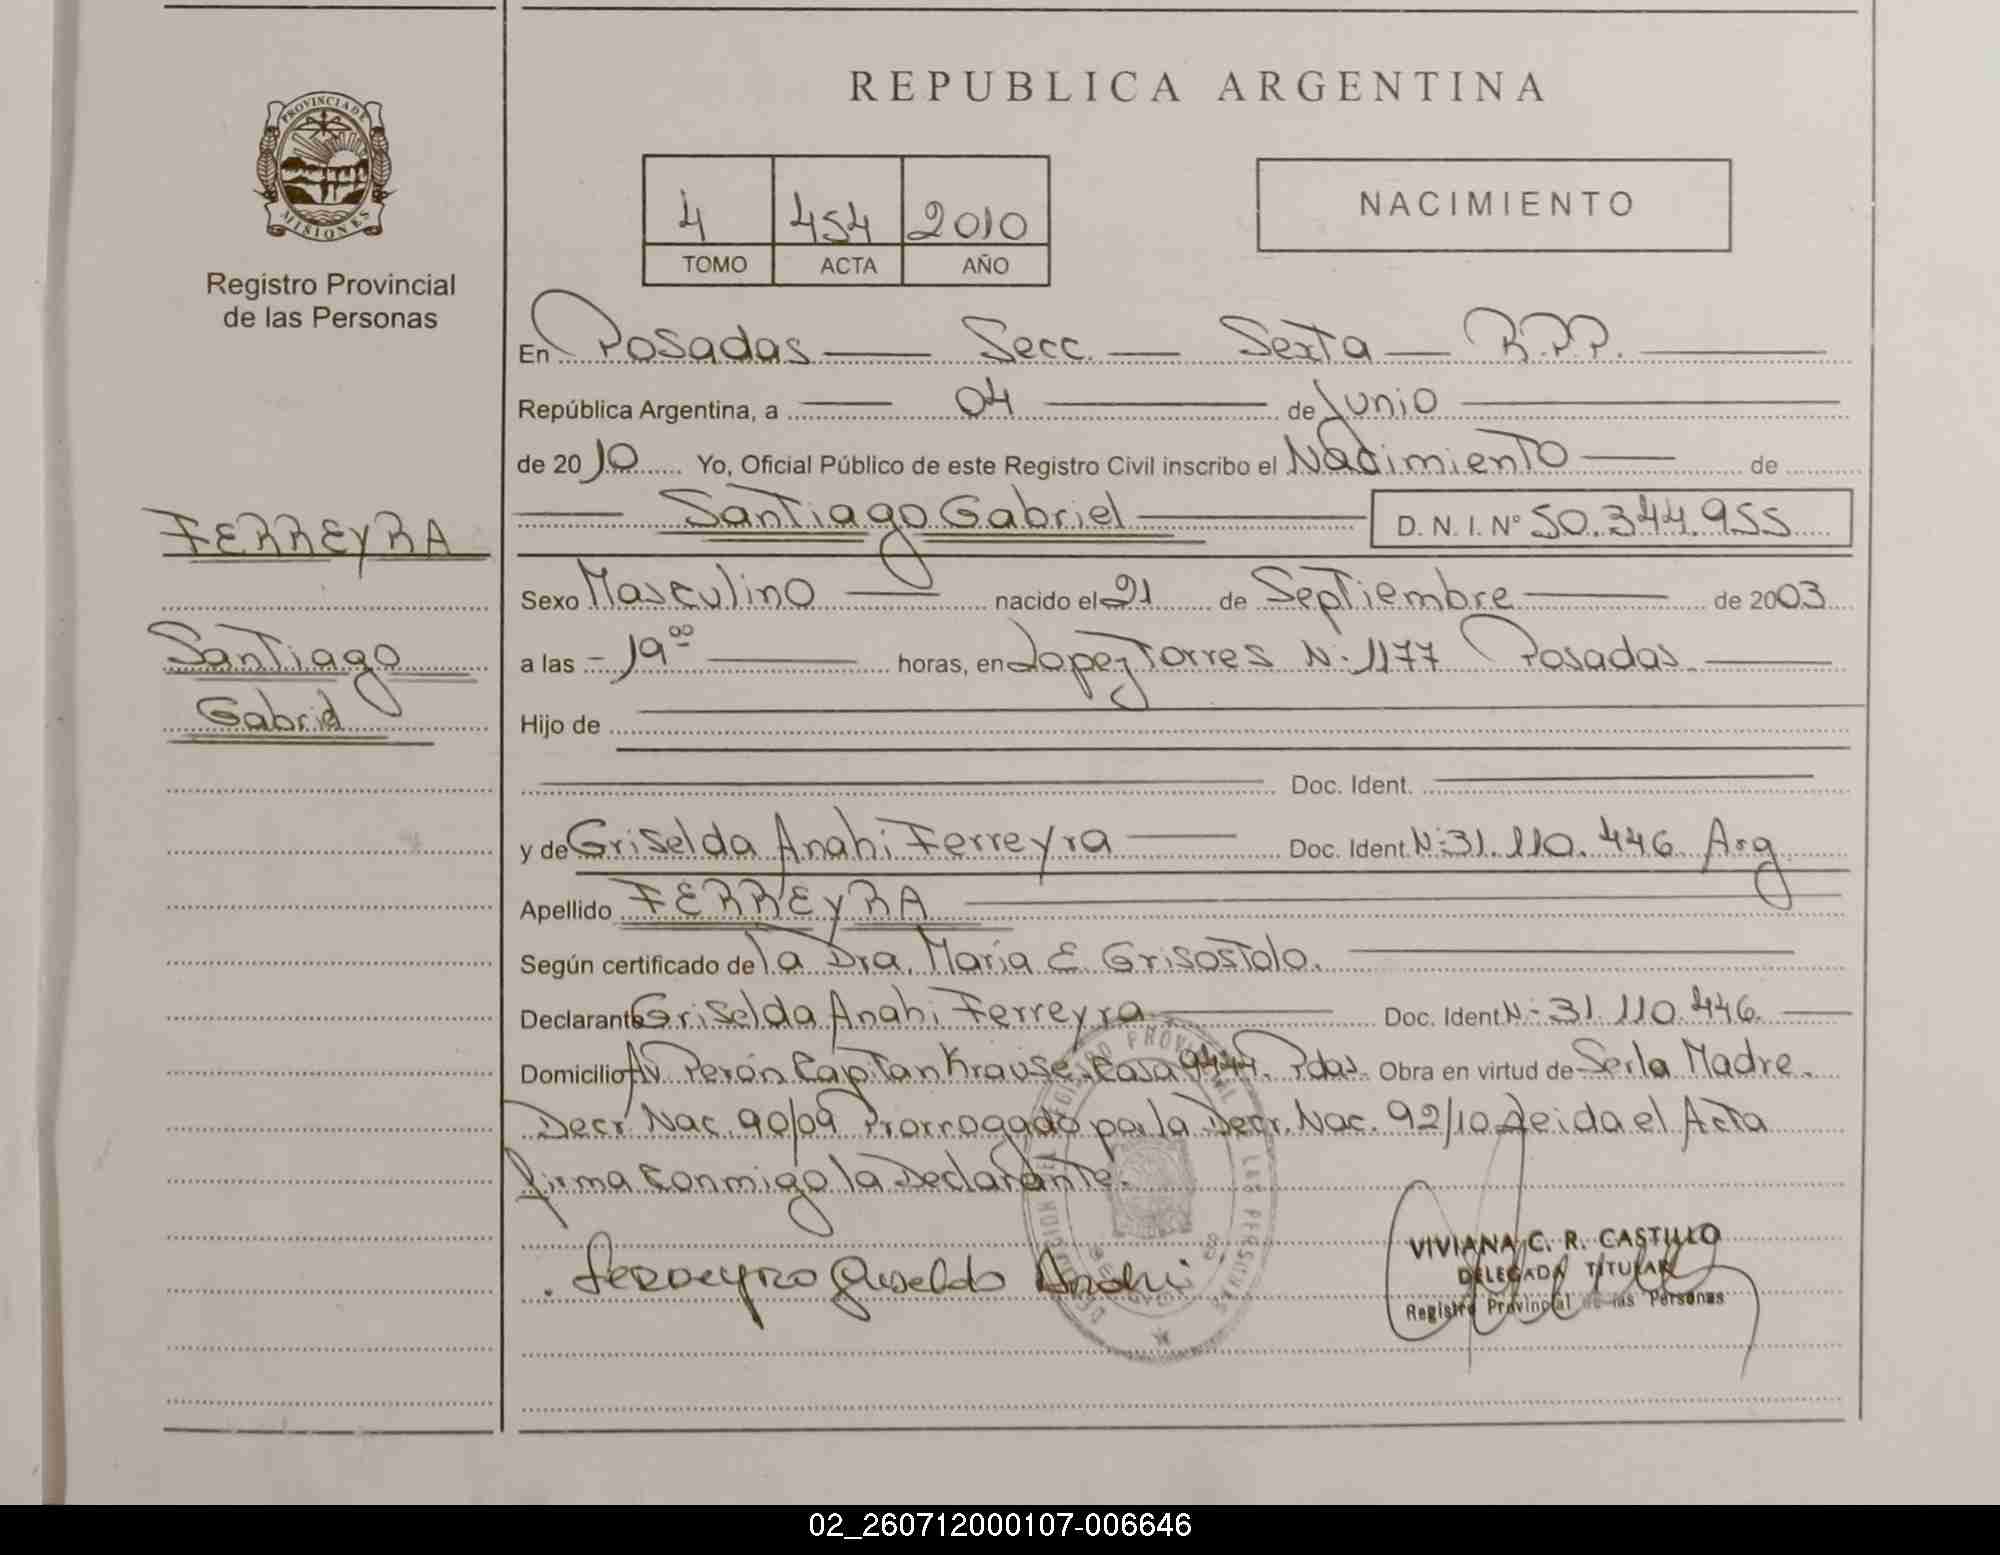 REPUBLICA ARGENTINA
PROVINCIA DE
MISIONES
Registro Provincial
de las Personas
4 454 2010
TOMO ACTA AÑO
NACIMIENTO
En Posadas Secc. Sexta R.P.P.
República Argentina, a 04 de Junio
de 2010 Yo, Oficial Público de este Registro Civil inscribo el Nacimiento de
Santiago Gabriel D. N. I. N° 50.344.955
FERREYRA
Sexo Masculino nacido el 21 de Septiembre de 2003
Santiago
a las 19⁰⁰ horas, en Lopez Torres N: 1177 Posadas
Gabriel
Hijo de
Doc. Ident.
y de Griselda Anahi Ferreyra Doc. Ident. N: 31.110.446 Arg
Apellido FERREYRA
Según certificado de la Dra. María E. Grisostolo.
Declarante Griselda Anahi Ferreyra Doc. Ident. N: 31.110.446
Domicilio Av Perón Capitan Krause Casa 9444. Pdas. Obra en virtud de Ser la Madre.
Decr Nac. 90/09 Prorrogado por la Decr. Nac. 92/10 Leida el Acta
firma conmigo la Declarante.
Ferreyra Griselda Anahi
VIVIANA C. R. CASTILLO
DELEGADA TITULAR
Registro Provincial de las Personas
02_260712000107-006646